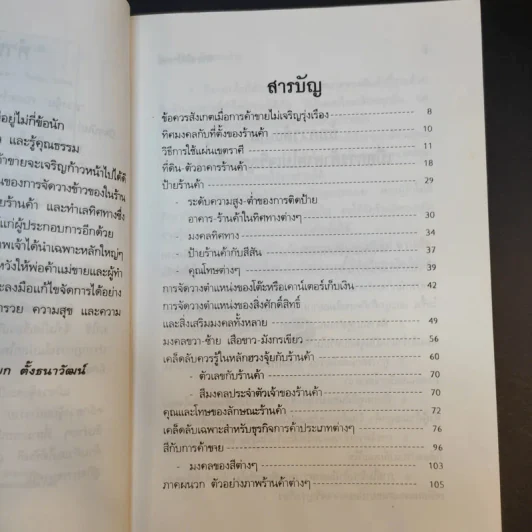 อยู่ไม่กี่ข้อนัก
และรู้คุณธรรม
ค้าขายจะเจริญก้าวหน้าไปได้ดี
นของการจัดวางข้าวของในร้าน
ยร้านค้า และทำเลทิศทางซึ่ง
แก่ผู้ประกอบการอีกด้วย
พเจ้าได้นำเฉพาะหลักใหญ่ๆ
หวังให้พ่อค้าแม่ขายและผู้ทำ
ะลงมือแก้ไขจัดการได้อย่าง
ำรวย ความสุข และความ
ตั้งธนาวัฒน์
สารบัญ
ข้อควรสังเกตเมื่อการค้าขายไม่เจริญรุ่งเรือง 8
ทิศมงคลกับที่ตั้งของร้านค้า 10
วิธีการใช้แผ่นเขตราศี 11
ที่ดิน-ตัวอาคารร้านค้า 18
ป้ายร้านค้า 29
- ระดับความสูง-ต่ำของการติดป้าย
อาคาร-ร้านค้าในทิศทางต่างๆ 30
- มงคลทิศทาง 34
- ป้ายร้านค้ากับสีสัน 37
- คุณโทษต่างๆ 39
การจัดวางตำแหน่งของโต๊ะหรือเคาน์เตอร์เก็บเงิน 42
การจัดวางตำแหน่งของสิ่งศักดิ์สิทธิ์
และสิ่งเสริมมงคลทั้งหลาย 49
มงคลขวา-ซ้าย เสือขาว-มังกรเขียว 56
เคล็ดลับควรรู้ในหลักฮวงจุ้ยกับร้านค้า 60
- ตัวเลขกับร้านค้า 70
- สีมงคลประจำตัวเจ้าของร้านค้า 70
คุณและโทษของลักษณะร้านค้า 72
เคล็ดลับเฉพาะสำหรับธุรกิจการค้าประเภทต่างๆ 76
สีกับการค้าขาย 96
- มงคลของสีต่างๆ 103
ภาคผนวก ตัวอย่างภาพร้านค้าต่างๆ 105